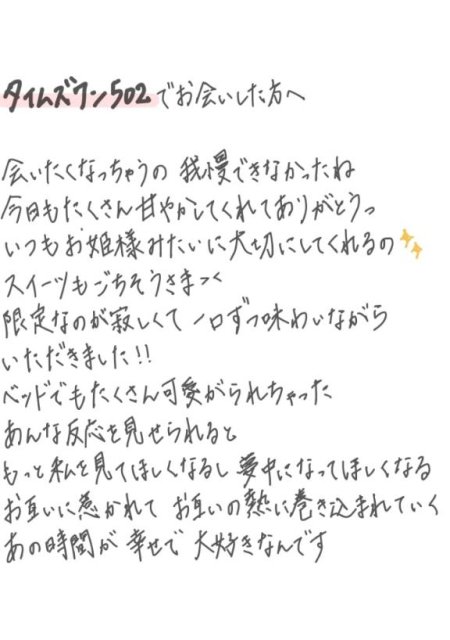 タイムズワン502でお会いした方へ
会いたくなっちゃうの 我慢できなかったね
今日もたくさん甘やかしてくれてありがとうっ
いつもお姫様みたいに大切にしてくれるの
スイーツもごちそうさまっ
限定なのが寂しくて 一口ずつ味わいながら
いただきました!!
ベッドでもたくさん可愛がられちゃった
あんな反応を見せられると
もっと私を見てほしくなるし 夢中になってほしくなる
お互いに惹かれて お互いの熱に巻き込まれていく
あの時間が 幸せで 大好きなんです